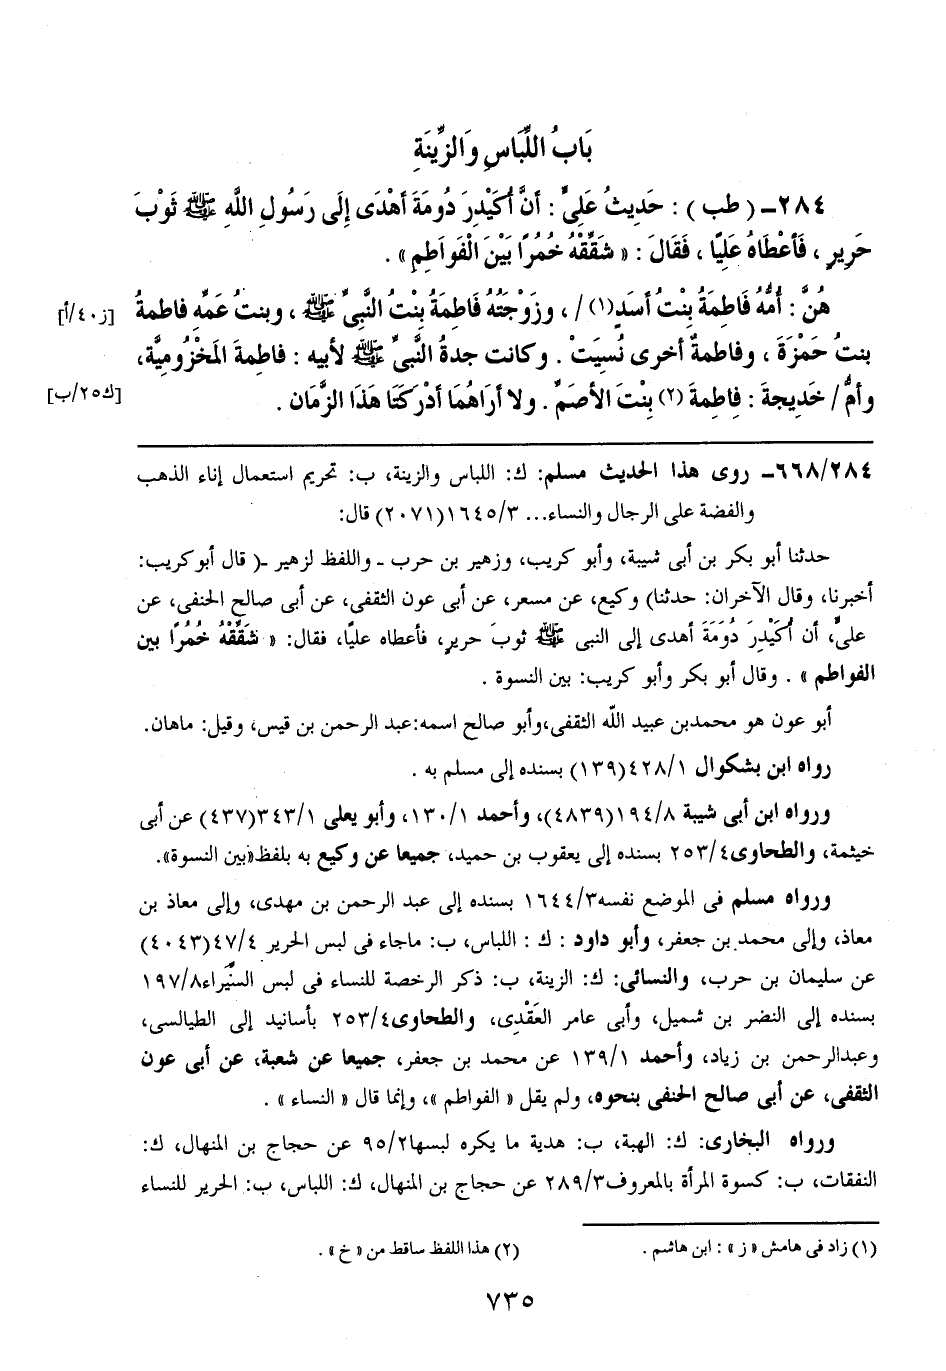 بَابُ اللِّبَاسِ وَالزِّينَةِ
٢٨٤ـ ( طب ) : حَدِيثُ عَلِيٍّ : أَنَّ أُكَيْدِرَ دُومَةَ أَهْدَى إِلَى رَسُولِ اللَّهِ ﷺ ثَوْبَ
حَرِيرٍ ، فَأَعْطَاهُ عَلِيًّا ، فَقَالَ : « شَقِّقْهُ خُمُرًا بَيْنَ الْفَوَاطِمِ » .
هُنَّ : أُمُّهُ فَاطِمَةُ بِنْتُ أَسَدٍ(١) /، وزَوْجَتُهُ فَاطِمَةُ بِنْتُ النَّبِيِّ ﷺ ، وبنتُ عَمِّهِ فاطمةُ [ز٤٠/أ]
بنتُ حَمْزَةَ ، وفاطمةٌ أخرى نُسِيَتْ . وكانت جدةُ النَّبيِّ ﷺ لأبيه : فاطمةَ المَخْزُومِيَّة،
وأمُّ/ خَدِيجةَ : فاطمةَ (٢) بِنْتَ الأصَمِّ . ولا أرَاهُمَا أدْرَكَتَا هَذَا الزَّمَان . [ك٢٥/ب]
٦٦٨/٢٨٤ـ روى هذا الحديث مسلم: ك: اللباس والزينة، ب: تحريم استعمال إناء الذهب
والفضة على الرجال والنساء... ١٦٤٥/٣(٢٠٧١) قال:
حدثنا أبو بكر بن أبى شيبة، وأبو كريب، وزهير بن حرب ـ واللفظ لزهير ـ( قال أبوكريب:
أخبرنا، وقال الآخران: حدثنا) وكيع، عن مسعر، عن أبى عون الثقفى، عن أبى صالح الحنفى، عن
علىٍّ، أن أُكَيْدِرَ دُوَمَةَ أهدى إلى النبى ﷺ ثوبَ حريرٍ، فأعطاه عليًا، فقال: « شَقِّقْهُ خُمُرًا بين
الفواطم » . وقال أبو بكر وأبو كريب: بين النسوة .
أبو عون هو محمدبن عبيد اللّه الثقفى،وأبو صالح اسمه:عبد الرحمن بن قيس، وقيل: ماهان.
رواه ابن بشكوال ٤٢٨/١(١٣٩) بسنده إلى مسلم به .
ورواه ابن أبى شيبة ١٩٤/٨(٤٨٣٩)، وأحمد ١٣٠/١، وأبو يعلى ٣٤٣/١(٤٣٧) عن أبى
خيثمة، والطحاوى٢٥٣/٤ بسنده إلى يعقوب بن حميد، جميعا عن وكيع به بلفظ«بين النسوة».
ورواه مسلم فى الموضع نفسه١٦٤٤/٣ بسنده إلى عبد الرحمن بن مهدى، وإلى معاذ بن
معاذ، وإلى محمد بن جعفر، وأبو داود : ك : اللباس، ب: ماجاء فى لبس الحرير ٤٧/٤(٤٠٤٣)
عن سليمان بن حرب، والنسائى: ك: الزينة، ب: ذكر الرخصة للنساء فى لبس السِّيَراء١٩٧/٨
بسنده إلى النضر بن شميل، وأبى عامر العَقْدِى، والطحاوى٢٥٣/٤ بأسانيد إلى الطيالسى،
وعبدالرحمن بن زياد، وأحمد ١٣٩/١ عن محمد بن جعفر، جميعا عن شعبة، عن أبى عون
الثقفى، عن أبى صالح الحنفى بنحوه، ولم يقل « الفواطم »، وإنما قال « النساء » .
ورواه البخارى: ك: الهبة، ب: هدية ما يكره لبسها٩٥/٢ عن حجاج بن المنهال، ك:
النفقات، ب: كسوة المرأة بالمعروف٢٨٩/٣ عن حجاج بن المنهال، ك: اللباس، ب: الحرير للنساء
(١) زاد فى هامش « ز » : ابن هاشم . (٢) هذا اللفظ ساقط من « خ » .
٧٣٥